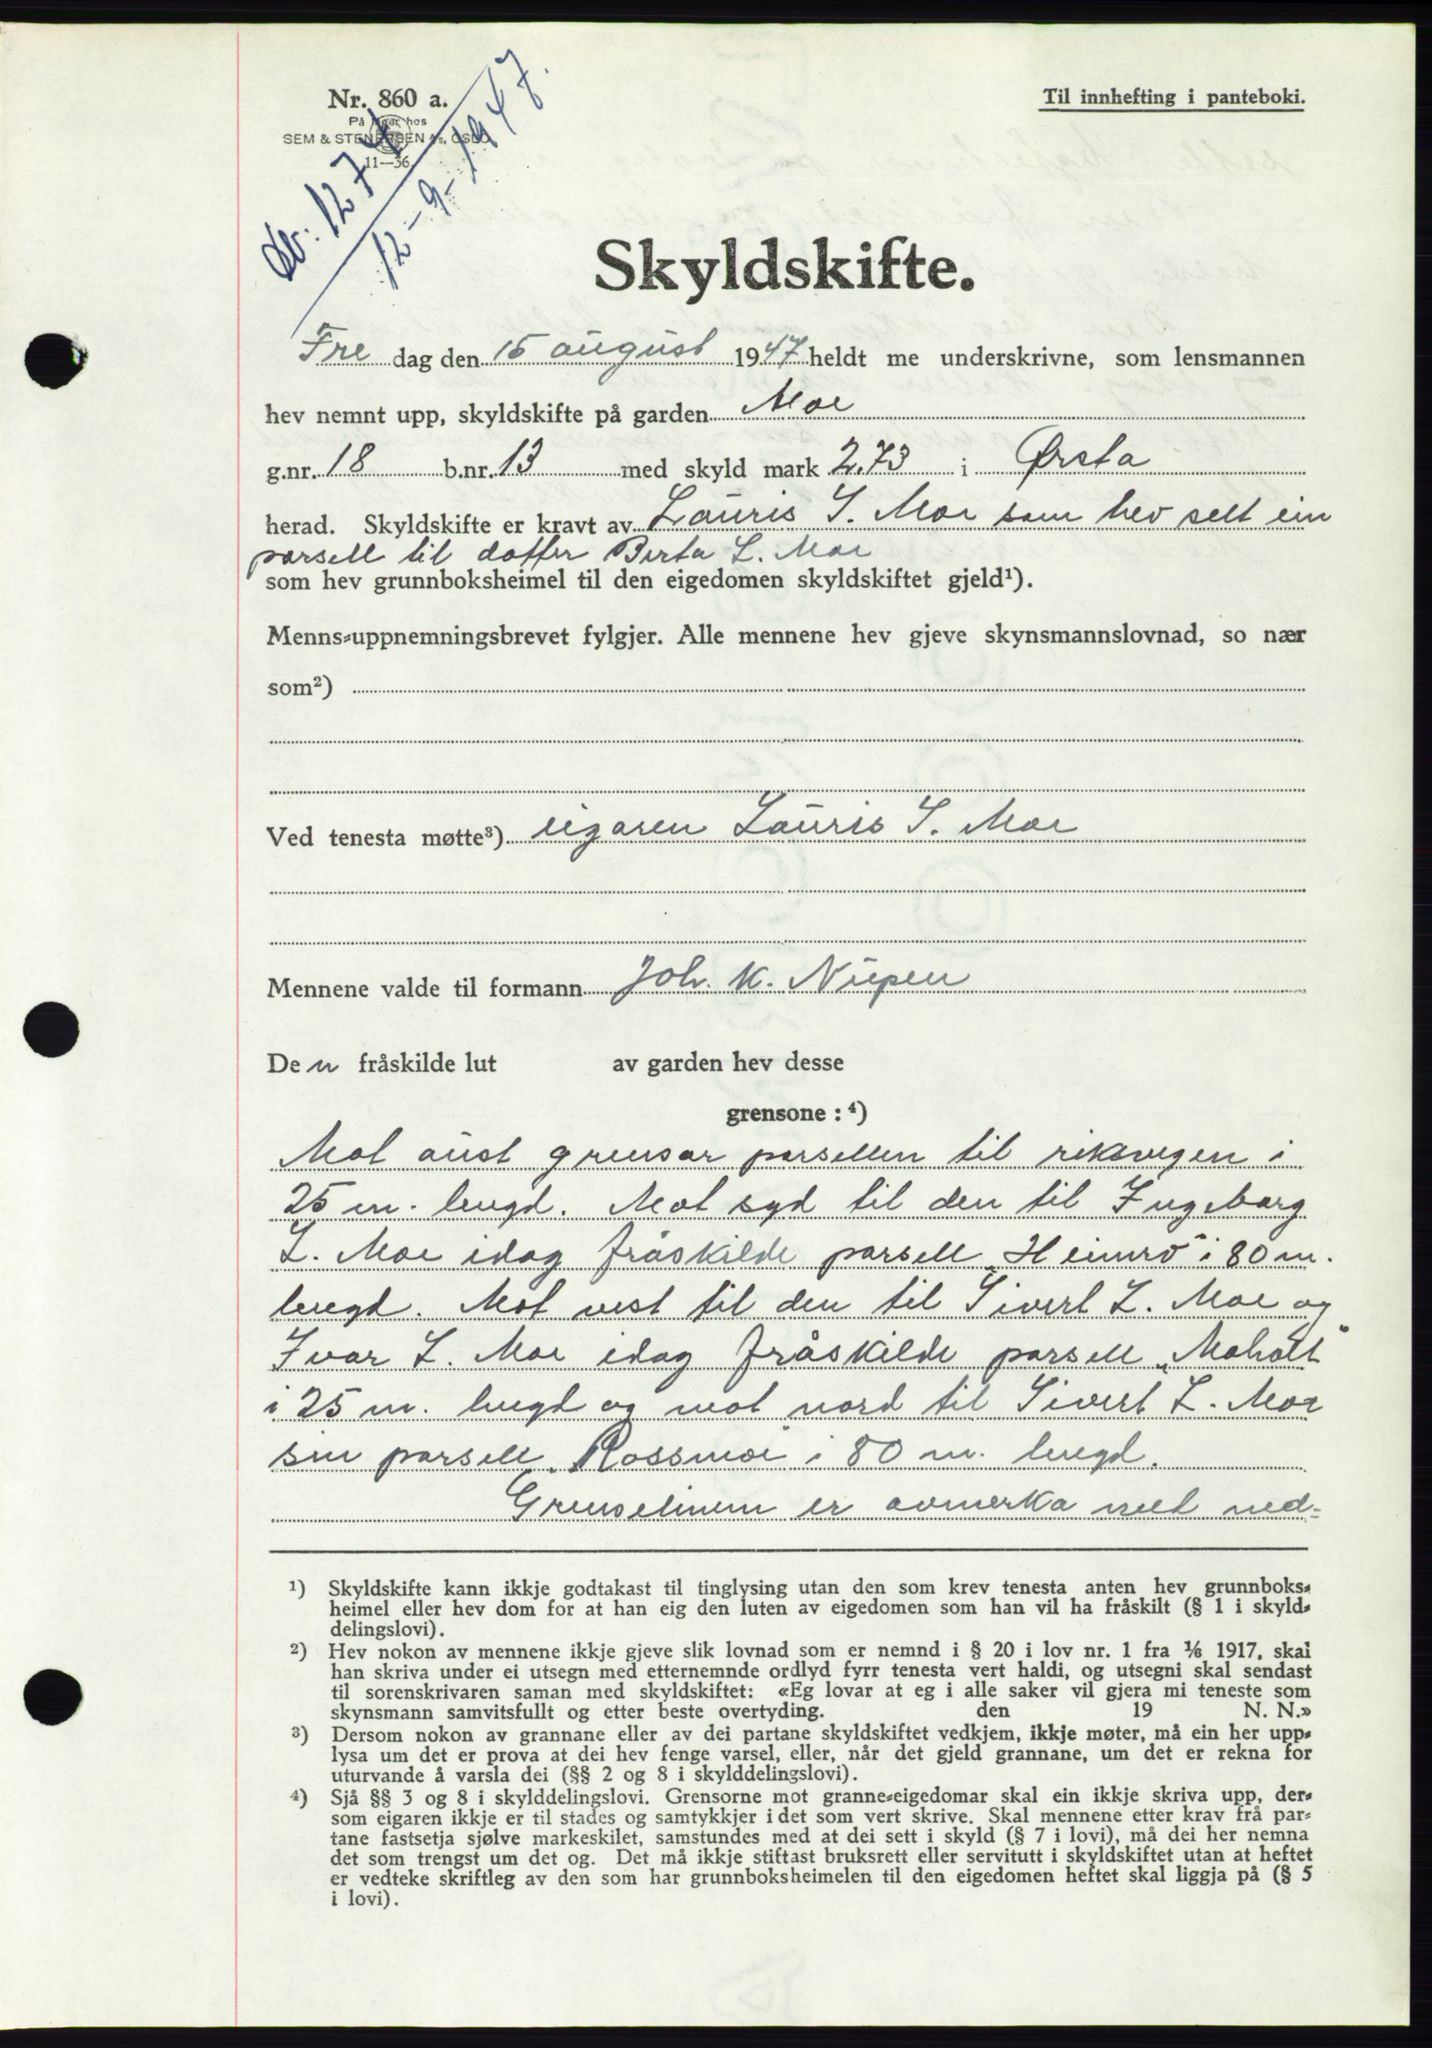 Nr. 860 a.
På lager hos
SEM & STENERSEN A/S, OSLO
11—36.
Til innhefting i panteboki.
db. 1274
12-9-1947.
Skyldskifte.
Fre dag den 15 august 1947 heldt me underskrivne, som lensmannen
hev nemnt upp, skyldskifte på garden Moe
g.nr. 18 b.nr. 13 med skyld mark 2.73 i Ørsta
herad. Skyldskifte er kravt av Lauris S. Moe som hev selt ein
parsell til dotter Berta L. Moe
som hev grunnboksheimel til den eigedomen skyldskiftet gjeld¹).
Menns-uppnemningsbrevet fylgjer. Alle mennene hev gjeve skynsmannslovnad, so nær
som²)
Ved tenesta møtte³) eigaren Lauris S. Moe
Mennene valde til formann Joh. K. Nupen
Den fråskilde lut av garden hev desse
grensone : ⁴)
Mot aust grensar parsellen til riksvegen i
25 m. lengd. Mot syd til den til Ingeborg
L. Moe idag fråskilde parsell „Heimro" i 80 m.
lengd. Mot vest til den til Sivert L. Moe og
Ivar L. Moe idag fråskilde parsell „Moholt"
i 25 m. lengd og mot nord til Sivert L. Moe
sin parsell „Rossmoe" i 80 m. lengd.
Grenselinem er avmerka med ned-
¹) Skyldskifte kann ikkje godtakast til tinglysing utan den som krev tenesta anten hev grunnboks-
heimel eller hev dom for at han eig den luten av eigedomen som han vil ha fråskilt (§ 1 i skyld-
delingslovi).
²) Hev nokon av mennene ikkje gjeve slik lovnad som er nemnd i § 20 i lov nr. 1 fra 1/6 1917, skal
han skriva under ei utsegn med etternemnde ordlyd fyrr tenesta vert haldi, og utsegni skal sendast
til sorenskrivaren saman med skyldskiftet: «Eg lovar at eg i alle saker vil gjera mi teneste som
skynsmann samvitsfullt og etter beste overtyding. den 19 N. N.»
³) Dersom nokon av grannane eller av dei partane skyldskiftet vedkjem, ikkje møter, må ein her upp-
lysa um det er prova at dei hev fenge varsel, eller, når det gjeld grannane, um det er rekna for
uturvande å varsla dei (§§ 2 og 8 i skylddelingslovi).
⁴) Sjå §§ 3 og 8 i skylddelingslovi. Grensorne mot granne-eigedomar skal ein ikkje skriva upp, der-
som eigaren ikkje er til stades og samtykkjer i det som vert skrive. Skal mennene etter krav frå par-
tane fastsetja sjølve markeskilet, samstundes med at dei sett i skyld (§ 7 i lovi), må dei her nemna
det som trengst um det og. Det må ikkje stiftast bruksrett eller servitutt i skyldskiftet utan at heftet
er vedteke skriftleg av den som har grunnboksheimelen til den eigedomen heftet skal liggja på (§ 5
i lovi).